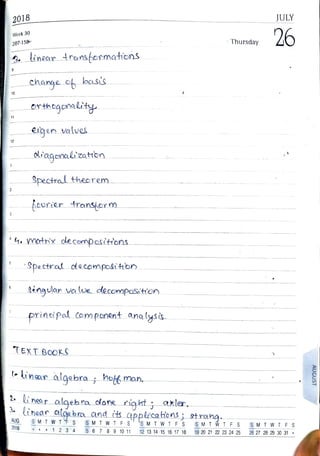 2018 JULY
Week 30
207-158
Thursday 26
3. linear transformations
change of basis
orthogonality
eigen values
diagonalization
Spectral theorem
fourier transform
4. matrix decompositions
Spectral decomposition
singular value decomposition
principal component analysis
TEXT BOOKS
1. linear algebra ; hoffman,
2. linear algebra done right ; axler,
3. linear algebra and its applications ; strang.
AUGUST
AUG S M T W T F S S M T W T F S S M T W T F S S M T W T F S S M T W T F S
2018 • • • 1 2 3 4 5 6 7 8 9 10 11 12 13 14 15 16 17 18 19 20 21 22 23 24 25 26 27 28 29 30 31 •